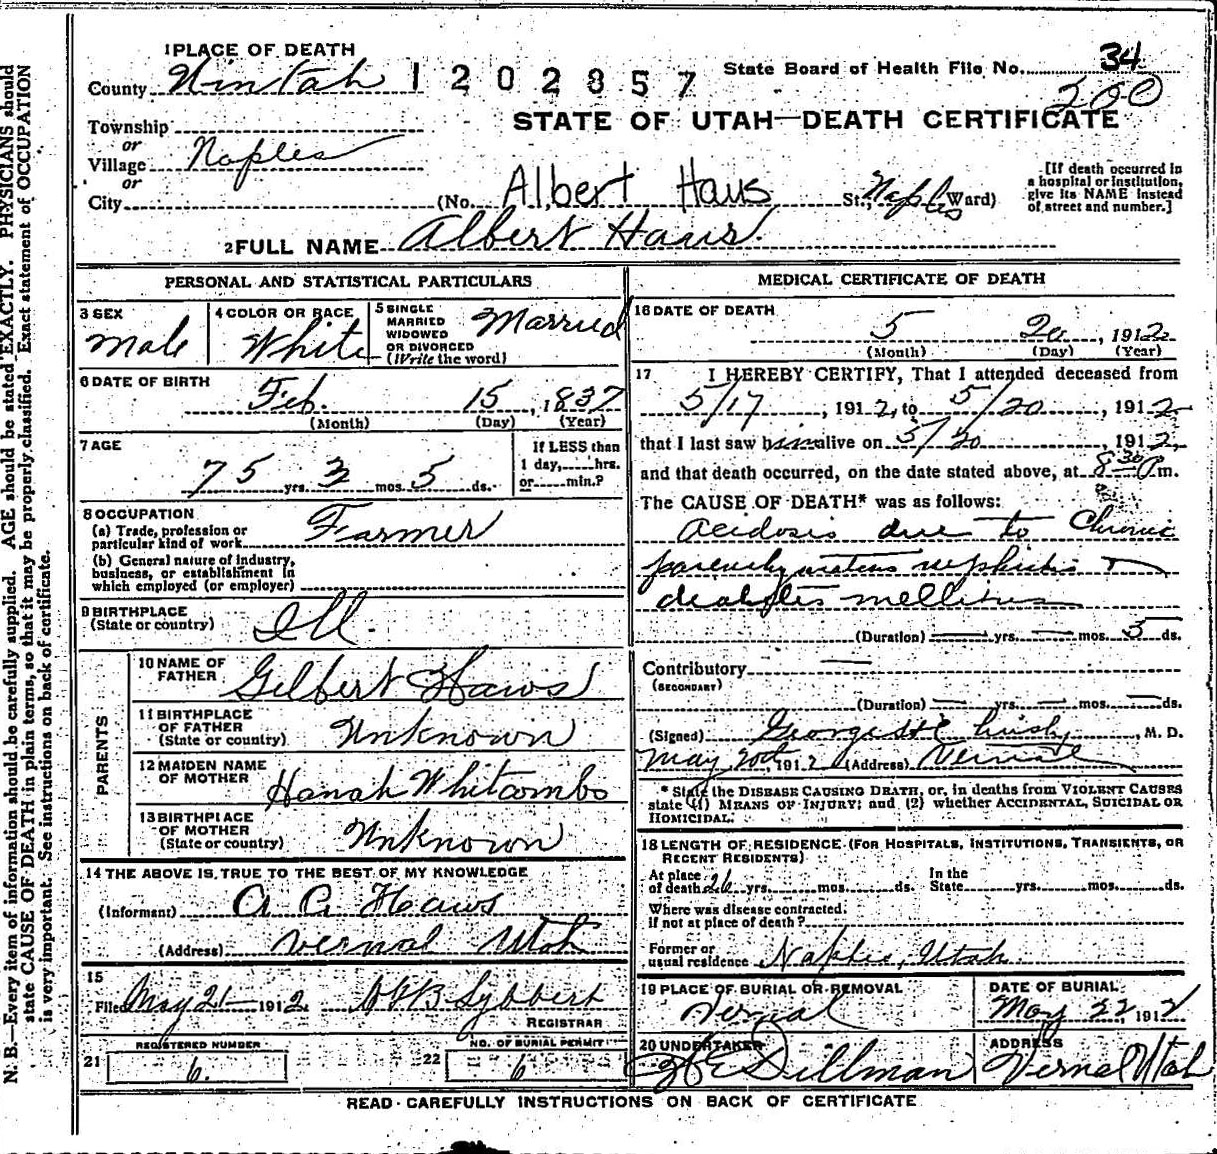 1 PLACE OF DEATH
County Uintah 1202857 State Board of Health File No. 34
200
STATE OF UTAH—DEATH CERTIFICATE
Township
or
Village Naples
or
City (No. Albert Haws St., Naples Ward)
[If death occurred in a hospital or institution, give its NAME instead of street and number.]
2 FULL NAME Albert Haws.
PERSONAL AND STATISTICAL PARTICULARS
3 SEX
Male
4 COLOR OR RACE
White
5 SINGLE
MARRIED
WIDOWED
OR DIVORCED
(Write the word)
Married
6 DATE OF BIRTH
Feb. 15, 1837
(Month) (Day) (Year)
7 AGE
75 yrs. 3 mos. 5 ds.
If LESS than
1 day, hrs.
or min.?
8 OCCUPATION
(a) Trade, profession or
particular kind of work Farmer
(b) General nature of industry,
business, or establishment in
which employed (or employer)
9 BIRTHPLACE
(State or country) Ill.
PARENTS
10 NAME OF
FATHER Gilbert Haws
11 BIRTHPLACE
OF FATHER
(State or country) Unknown
12 MAIDEN NAME
OF MOTHER Hanah Whitcombs
13 BIRTHPLACE
OF MOTHER
(State or country) Unknown
14 THE ABOVE IS TRUE TO THE BEST OF MY KNOWLEDGE
(Informant) A. C. Haws
(Address) Vernal Utah
15
Filed May 21 1912. Sybbert
REGISTRAR
21 REGISTERED NUMBER
6.
22 NO. OF BURIAL PERMIT
6
MEDICAL CERTIFICATE OF DEATH
16 DATE OF DEATH
5 20, 1912
(Month) (Day) (Year)
17 I HEREBY CERTIFY, That I attended deceased from
5/17, 1912, to 5/20, 1912
that I last saw him alive on 5/20, 1912,
and that death occurred, on the date stated above, at 8 30 P m.
The CAUSE OF DEATH* was as follows:
Acidosis due to Chronic
parenchymatous nephritis
diabetes mellitus
(Duration) — yrs. — mos. 3 ds.
Contributory —
(SECONDARY)
(Duration) — yrs. — mos. — ds.
(Signed) George, M. D.
May 20th, 1912 (Address) Vernal
* State the DISEASE CAUSING DEATH, or, in deaths from VIOLENT CAUSES
state (1) MEANS OF INJURY; and (2) whether ACCIDENTAL, SUICIDAL OR
HOMICIDAL.
18 LENGTH OF RESIDENCE (FOR HOSPITALS, INSTITUTIONS, TRANSIENTS, OR
RECENT RESIDENTS)
At place
of death 26 yrs. mos. ds.
In the
State yrs. mos. ds.
Where was disease contracted,
if not at place of death?
Former or
usual residence Naples, Utah
19 PLACE OF BURIAL OR REMOVAL
Vernal
DATE OF BURIAL
May 22, 1912
20 UNDERTAKER
Dillman
ADDRESS
Vernal Utah
READ CAREFULLY INSTRUCTIONS ON BACK OF CERTIFICATE
N. B.—Every item of information should be carefully supplied. AGE should be stated EXACTLY. PHYSICIANS should
state CAUSE OF DEATH in plain terms, so that it may be properly classified. Exact statement of OCCUPATION
is very important. See instructions on back of certificate.